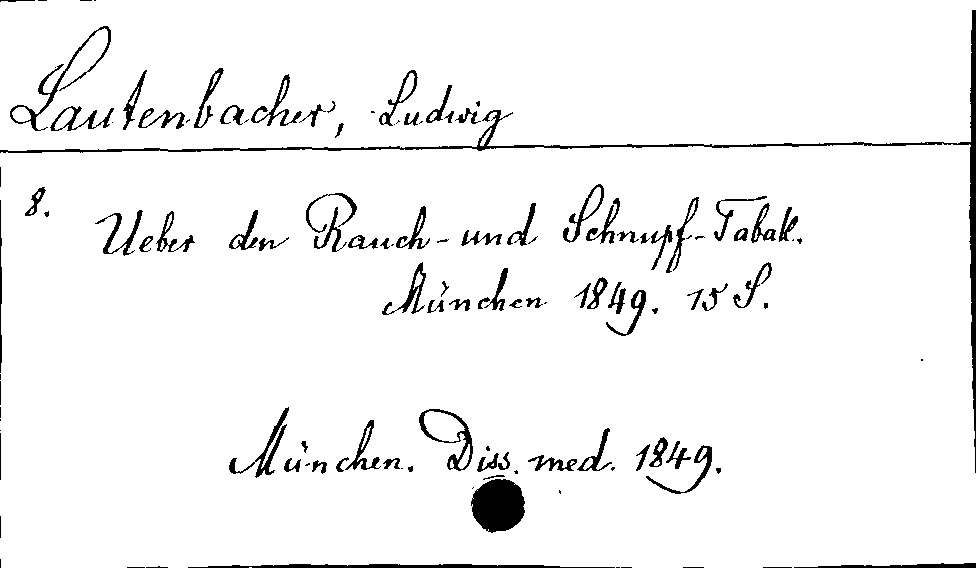 Lautenbacher, Ludwig
8.
Ueber den Rauch- und Schnupf-Tabak.
München 1849. 15 S.
München. Diss. med. 1849.